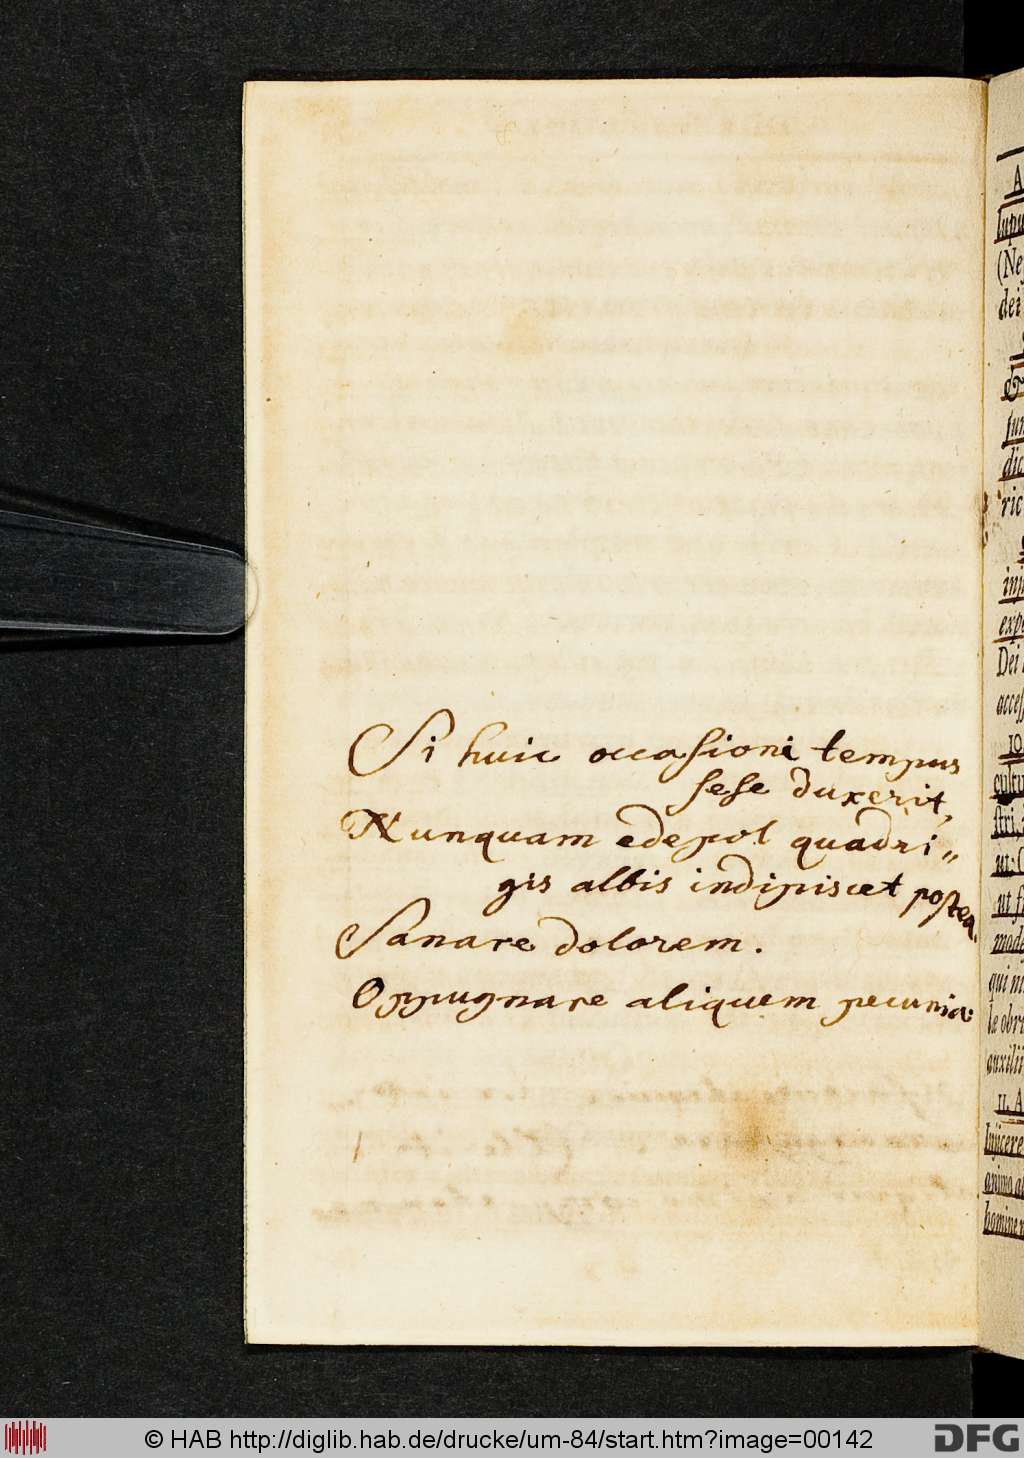 Si huic occasioni tempus
sese duxerit,
Nunquam edepol quadri„
gis albis indipiscet postea.
Sanare dolorem.
Oppugnare aliquem pecunia.
A
lupu
(Ne
dei
&
jun
dic
ric
inj
expe
Dei
acces
10
cultu
stri,
ut
ut f
mod
qui ni
læ obri
auxilii
11. A
Injicere
animo a
homine n
© HAB http://diglib.hab.de/drucke/um-84/start.htm?image=00142
DFG